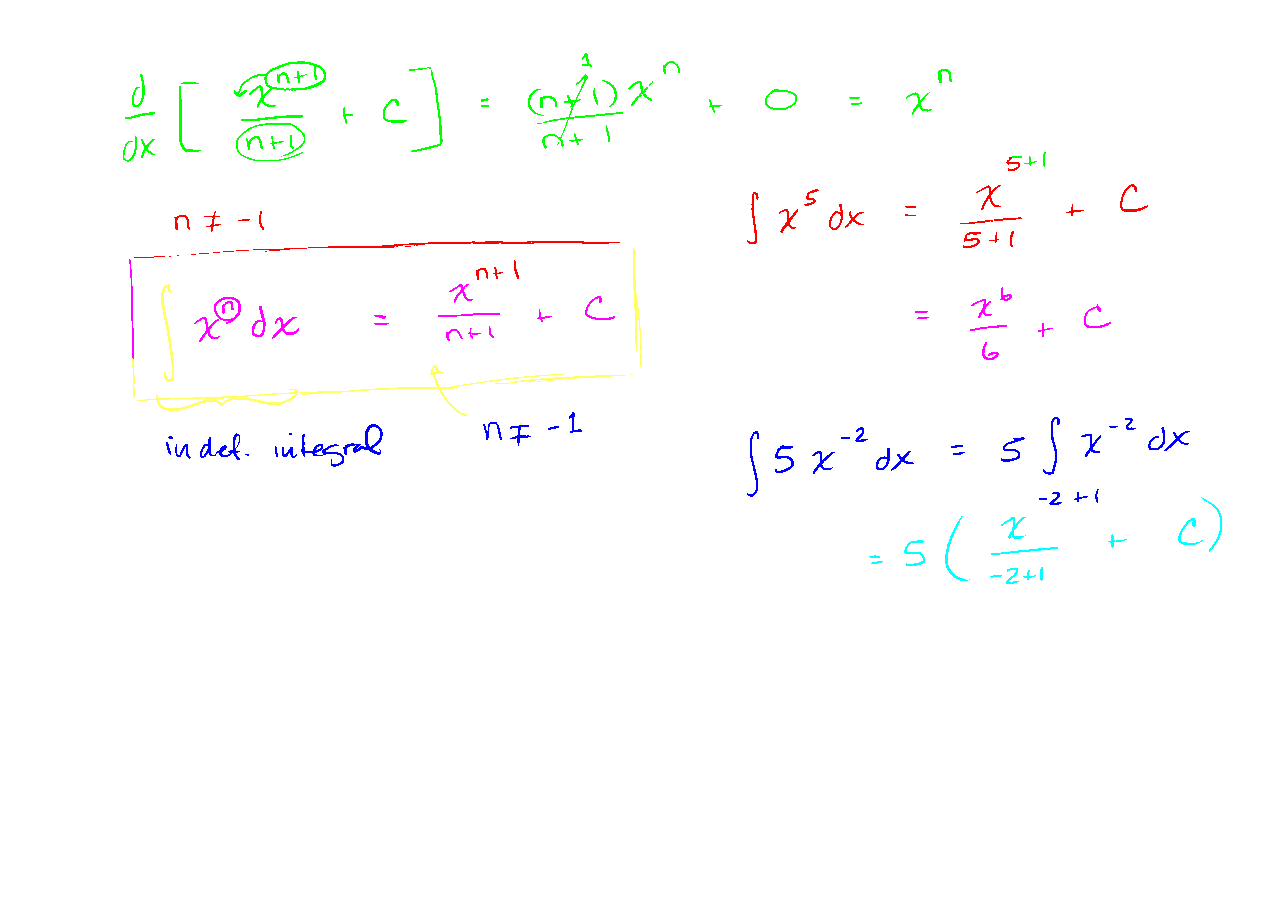 d/dx [ x^(n+1)/(n+1) + C ] = (n+1)x^n/(n+1) 1 + 0 = x^n
n ≠ -1
∫ x^n dx = x^(n+1)/(n+1) + C
indef. integral
n ≠ -1
∫ x^5 dx = x^(5+1)/(5+1) + C
= x^6/6 + C
∫ 5 x^(-2) dx = 5 ∫ x^(-2) dx
= 5 ( x^(-2+1)/(-2+1) + C )